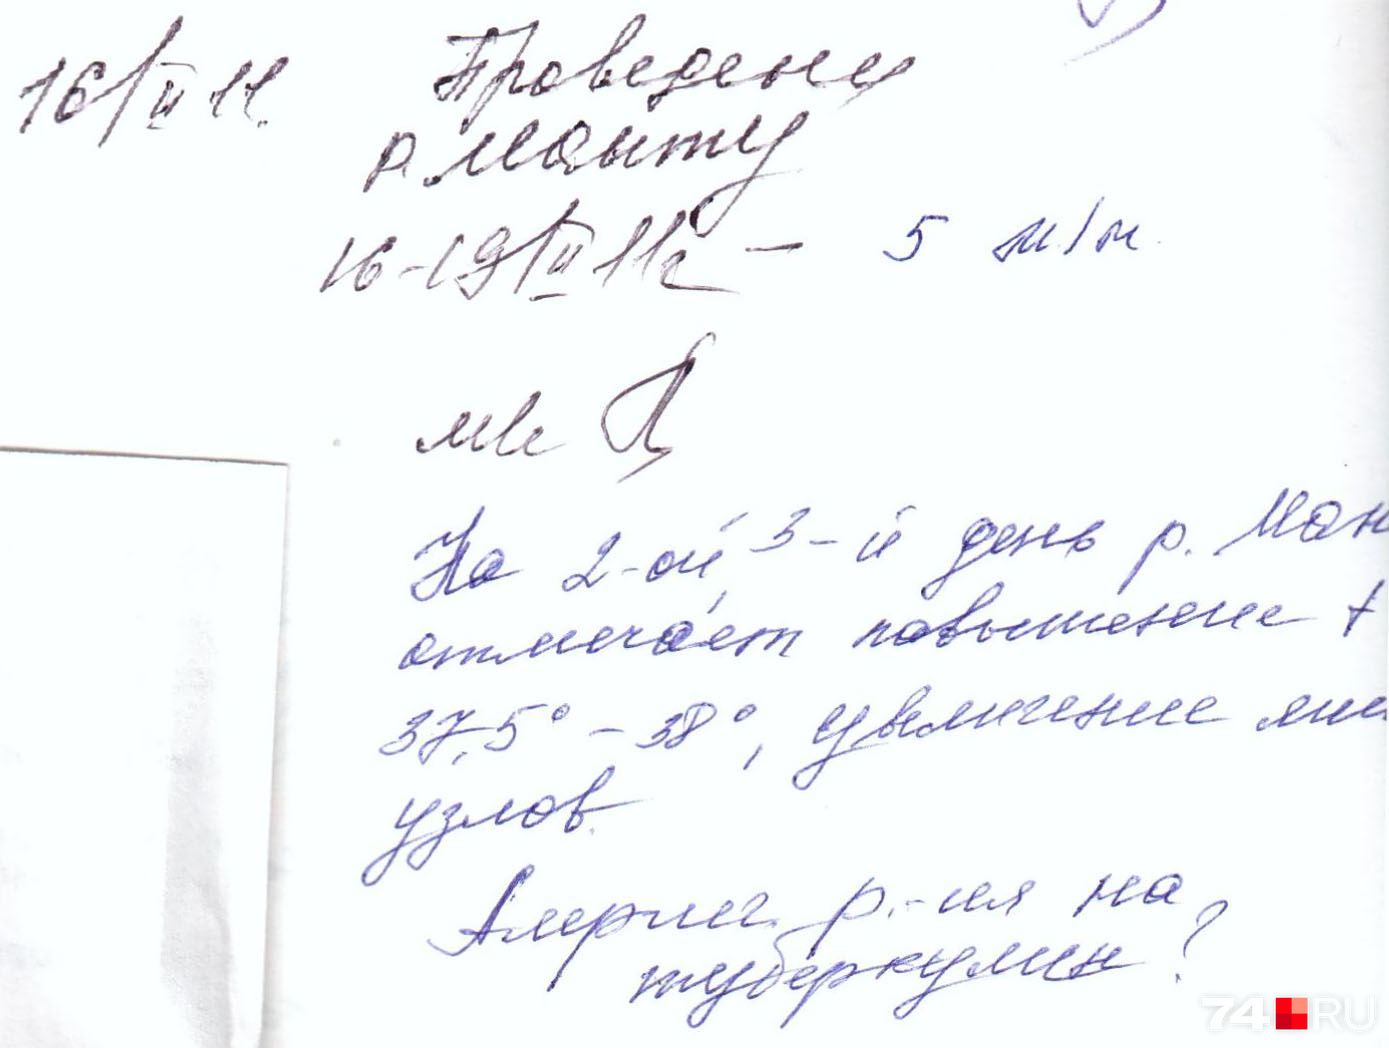 16/II 11. Проведени
р. Манту
16-19/II 11г — 5 м/м.
На 2-ой, 3-й день р. Ман
отмечает повышение t
37,5° – 38°, увеличение лим
узлов.
Аллергич. р.-ия на
туберкулин?
74 RU